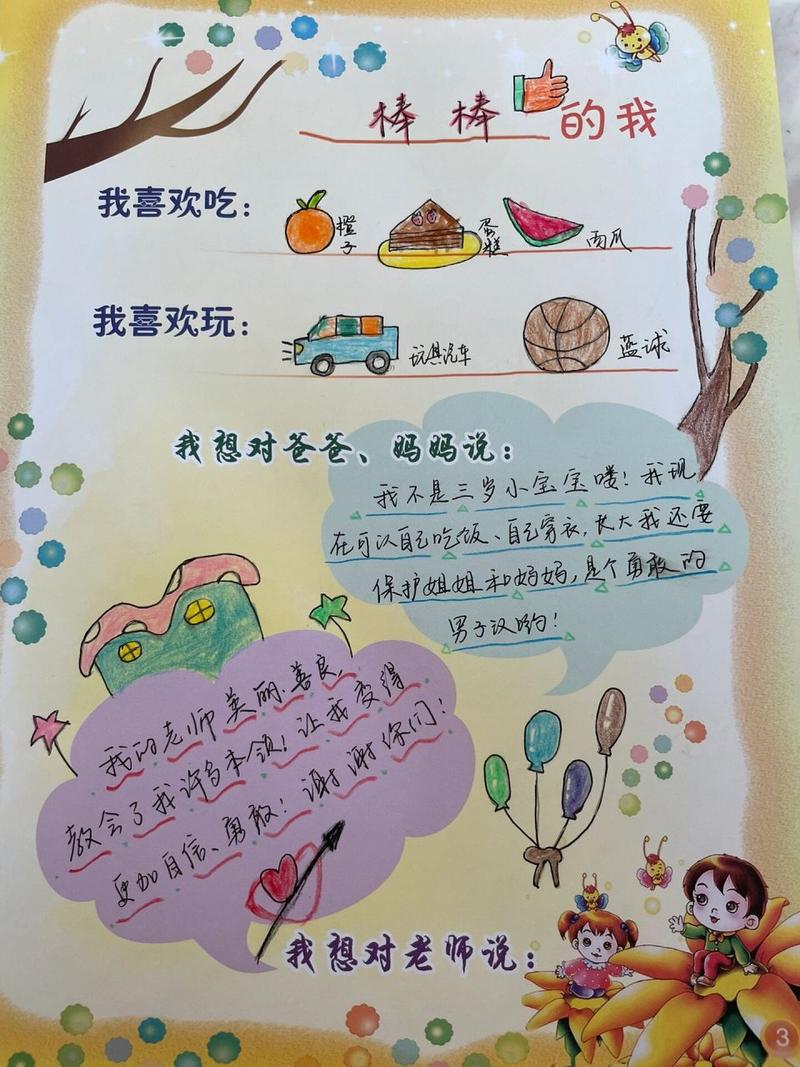 棒 棒 的我
我喜欢吃：
橙子 蛋糕 西瓜
我喜欢玩：
玩具汽车 蓝球
我想对爸爸、妈妈说：
我不是三岁小宝宝喽！我现
在可以自己吃饭、自己穿衣，长大我还要
保护姐姐和妈妈，是个勇敢的
男子汉哟！
我的老师美丽、善良，
教会了我许多本领！让我变得
更加自信、勇敢！谢谢你们！
我想对老师说：
3